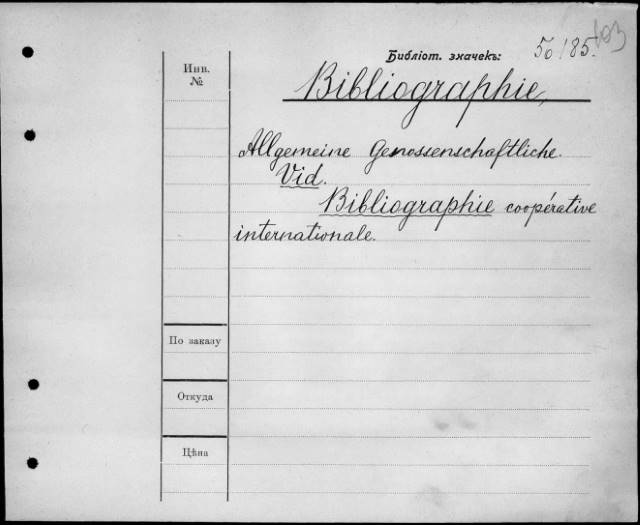 Библіот. значекъ: 50/85. 103
Инв.
№
Bibliographie,
Allgemeine Genossenschaftliche.
Vid.
Bibliographie coopérative
internationale.
По заказу
Откуда
Цѣна